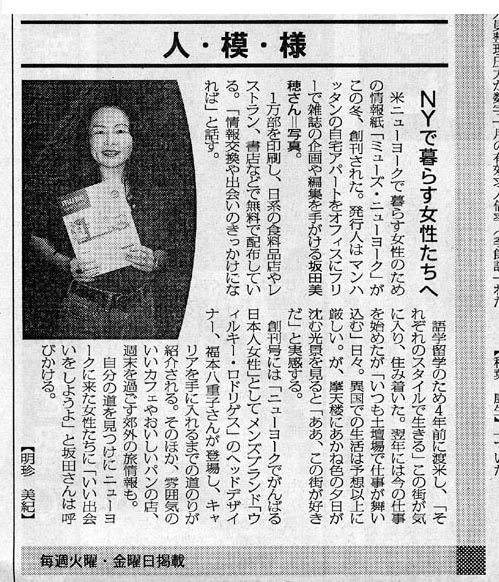 人・模・様
NYで暮らす女性たちへ
米ニューヨークで暮らす女性のため
の情報紙「ミューズ・ニューヨーク」が
この冬、創刊された。発行人はマンハ
ッタンの自宅アパートをオフィスにフリ
ーで雑誌の企画や編集を手がける坂田美
穂さん＝写真。
１万部を印刷し、日系の食料品店やレ
ストラン、書店などで無料で配布してい
る。「情報交換や出会いのきっかけにな
れば」と話す。
語学留学のため４年前に渡米し、「そ
れぞれのスタイルで生きる」この街が気
に入り、住み着いた。翌年には今の仕事
を始めたが「いつも土壇場で仕事が舞い
込む」日々。異国での生活は予想以上に
厳しい。が、摩天楼にあかね色の夕日が
沈む光景を見ると「ああ、この街が好き
だ」と実感する。
創刊号には「ニューヨークでがんばる
日本人女性」としてメンズブランド「ウ
ィルキー・ロドリゲス」のヘッドデザイ
ナー、福本八重子さんが登場し、キャ
リアを手に入れるまでの道のりが
紹介される。そのほか、雰囲気の
いいカフェやおいしいパンの店、
週末を過ごす郊外の旅情報も。
自分の道を見つけにニューヨ
ークに来た女性たちに「いい出会
いをしようよ」と坂田さんは呼
びかける。
【明珍　美紀】
毎週火曜・金曜日掲載